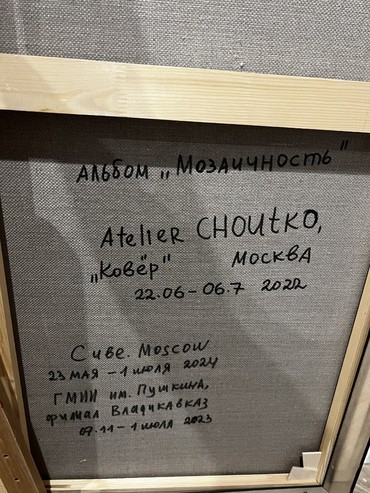 Альбом „Мозаичность"
Atelier CHOUtKO,
„Ковёр" Москва
22.06-06.7 2022
Cиве. Moscow
23 мая - 1 июля 2024
ГМИИ им. Пушкина,
филиал Владикавказ
07.11-1 июля 2023